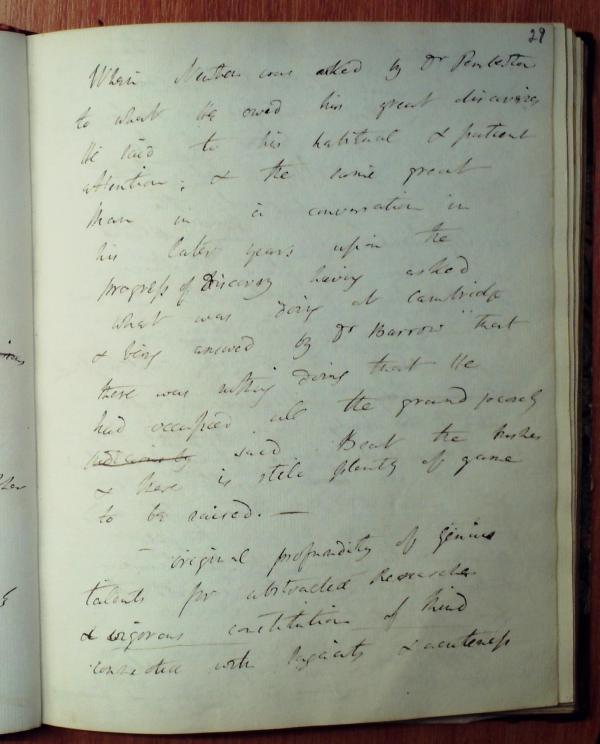 29
When Newton was asked by Dr Pemberton
to what He owed his great discoveries
He said to his habitual & patient
attention; & the same great
Man in a conversation in
his later years upon the
progress of Discovery having asked
what was doing at Cambridge
& being answed by Dr Barrow "that
there was nothing doing that He
had occupied all the ground jocosely
said Beat the bushes
& there is still plenty of game
to be raised. —
— original profundity of Genius
talents for abstracted Researches
& vigorous constitution of Mind
connected with sagacity & acuteness